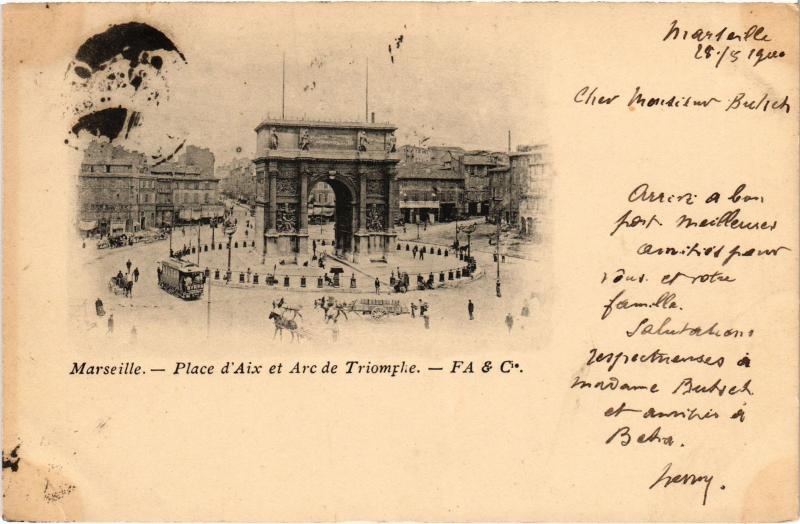 Marseille
28/5 1900
Cher Monsieur Butsch
Arrivé a bon
port meilleures
amitiés pour
vous et votre
famille.
Salutations
respectueuses à
madame Butsch
et amitiés à
Marseille. — Place d'Aix et Arc de Triomphe. — FA & Cie.